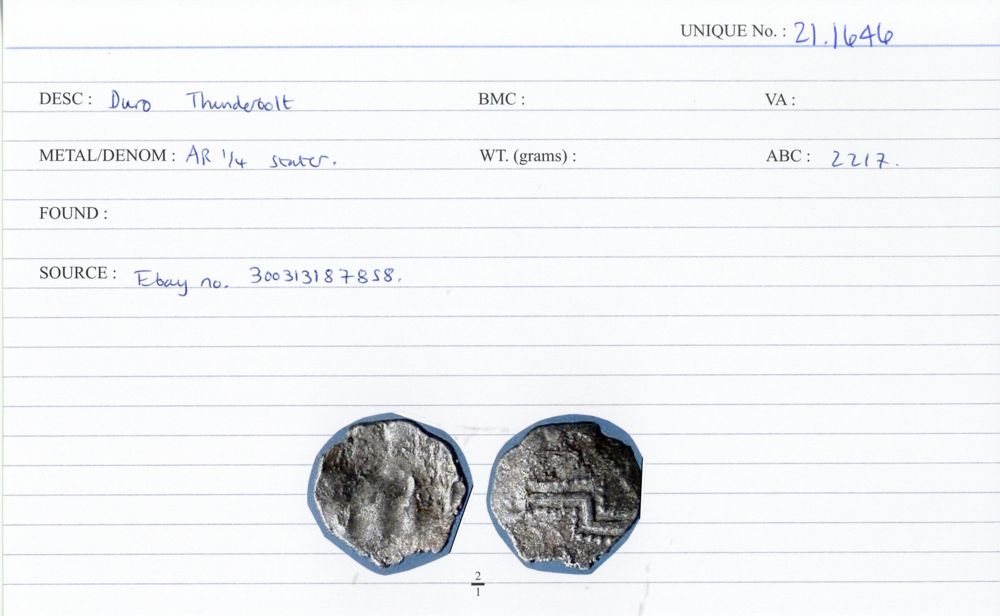 UNIQUE No. : 21.1646
DESC : Duro Thunderbolt BMC : VA :
METAL/DENOM : AR 1/4 stater. WT. (grams) : ABC : 2217.
FOUND :
SOURCE : Ebay no. 300313187858.
2
1